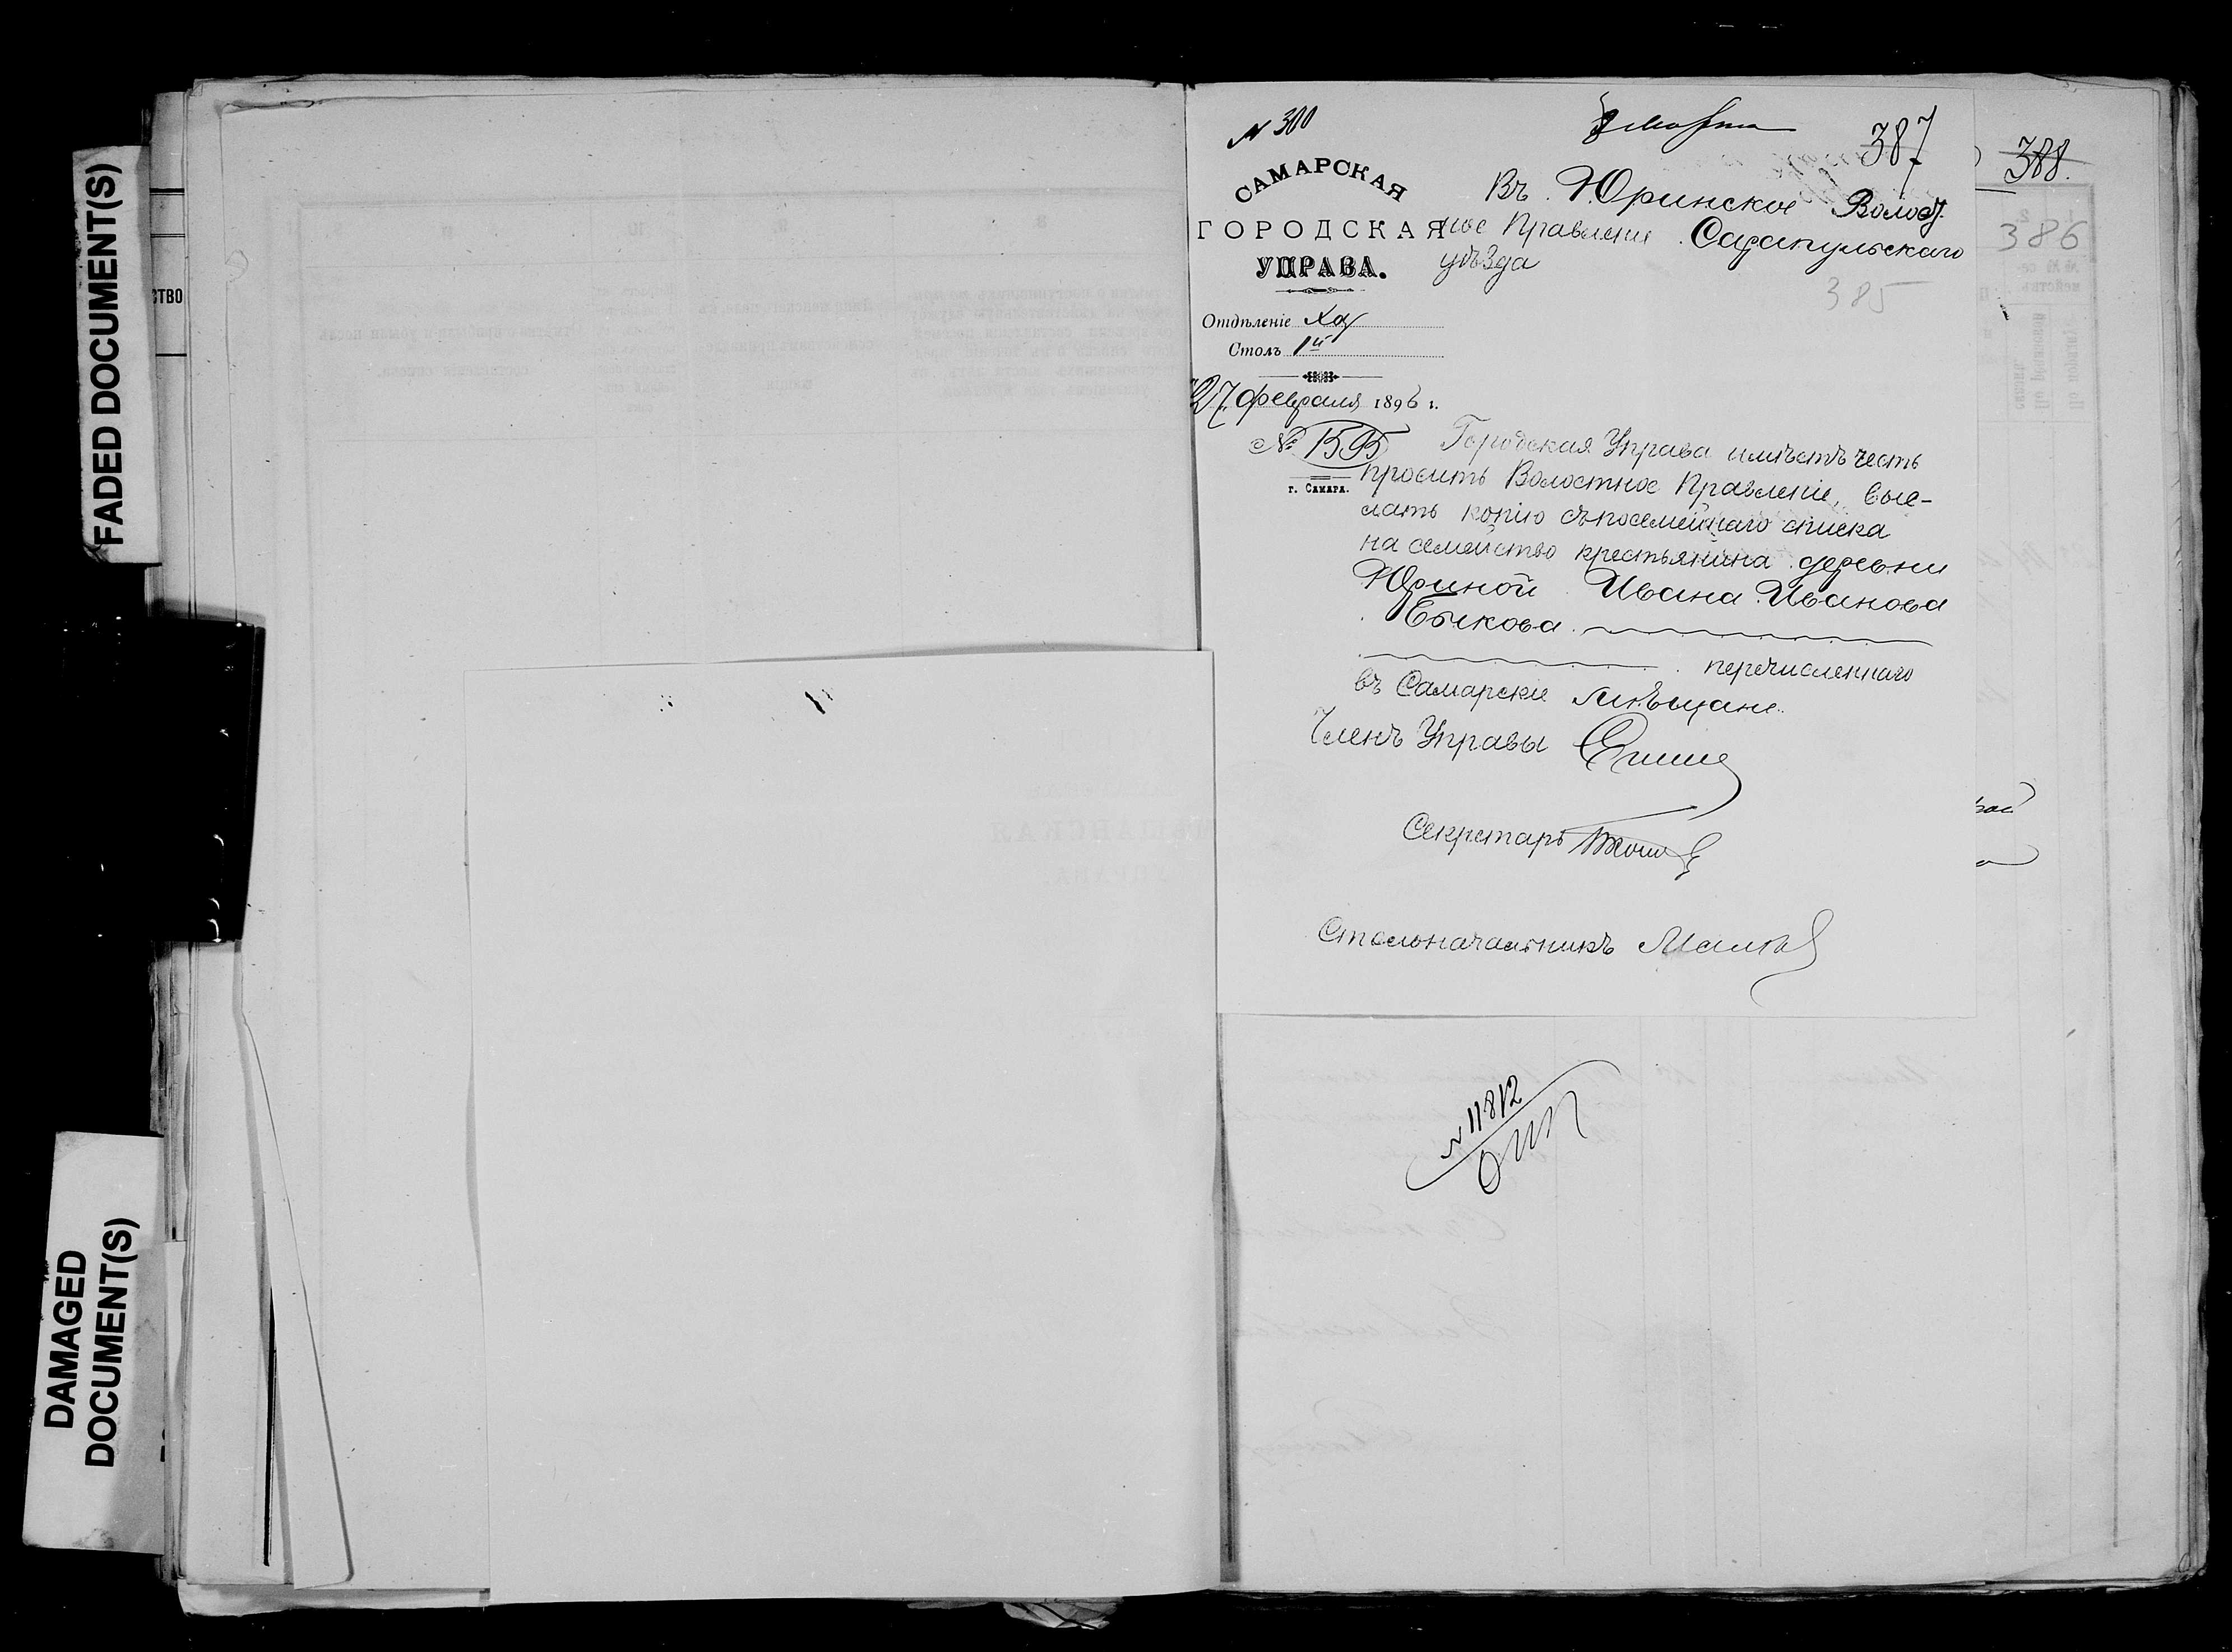 FADED DOCUMENT(S)
DAMAGED
DOCUMENT(S)
СТВО
№ 300
8 марта
387
388.
386
385
САМАРСКАЯ
ГОРОДСКАЯ
УПРАВА.
Отдѣленіе Хоз
Столъ 1й
27 февраля 1896 г.
№ 1595
г. САМАРА.
Въ Юринское Волост
ное Правленіе Сарапульскаго
уѣзда
Городская Управа имѣетъ честь
просить Волостное Правленіе, выс-
лать копію съ посемейнаго списка
на семейство крестьянина деревни
Юриной Ивана Иванова
Быкова.
перечисленнаго
въ Самарскіе мѣщане.
Членъ Управы
Секретарь
Столоначальникъ
№ 11812